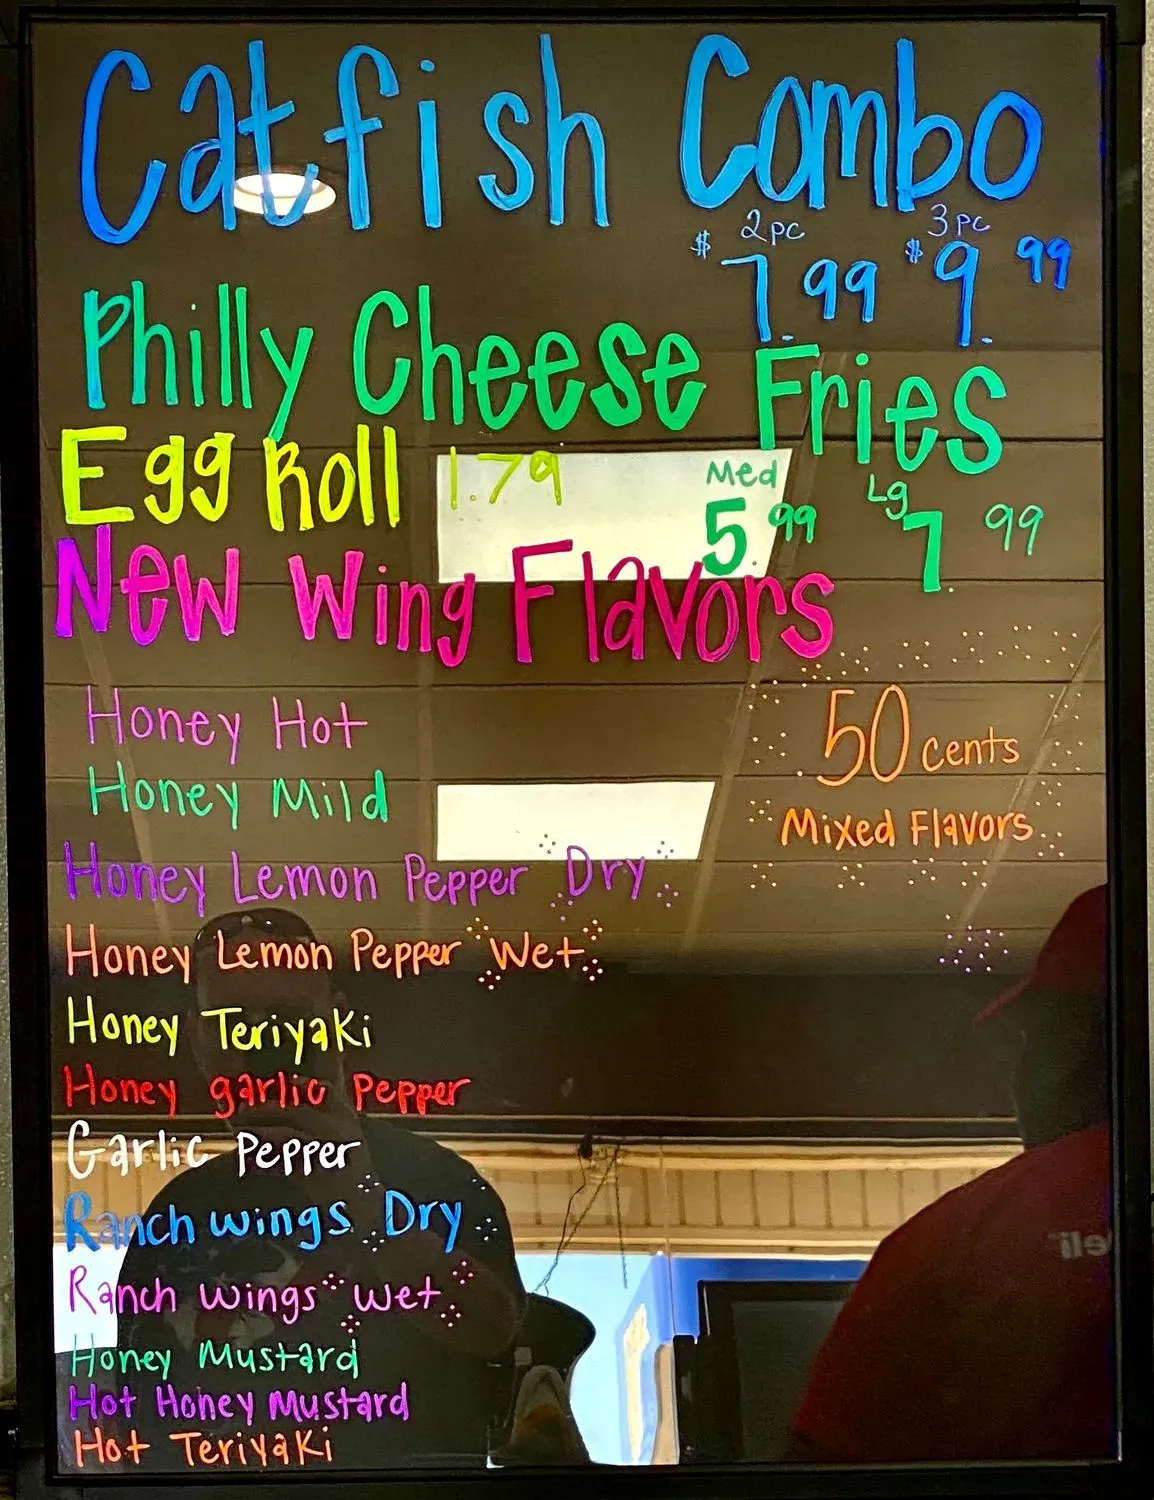 Catfish Combo
2pc 3pc
$7.99 $9.99
Philly Cheese Fries
Egg Roll 1.79
Med Lg
5.99 7.99
New Wing Flavors
Honey Hot
Honey Mild
50 cents
Mixed Flavors
Honey Lemon Pepper Dry
Honey Lemon Pepper Wet
Honey Teriyaki
Honey garlic Pepper
Garlic Pepper
Ranch wings Dry
Ranch wings wet
Honey Mustard
Hot Honey Mustard
Hot Teriyaki